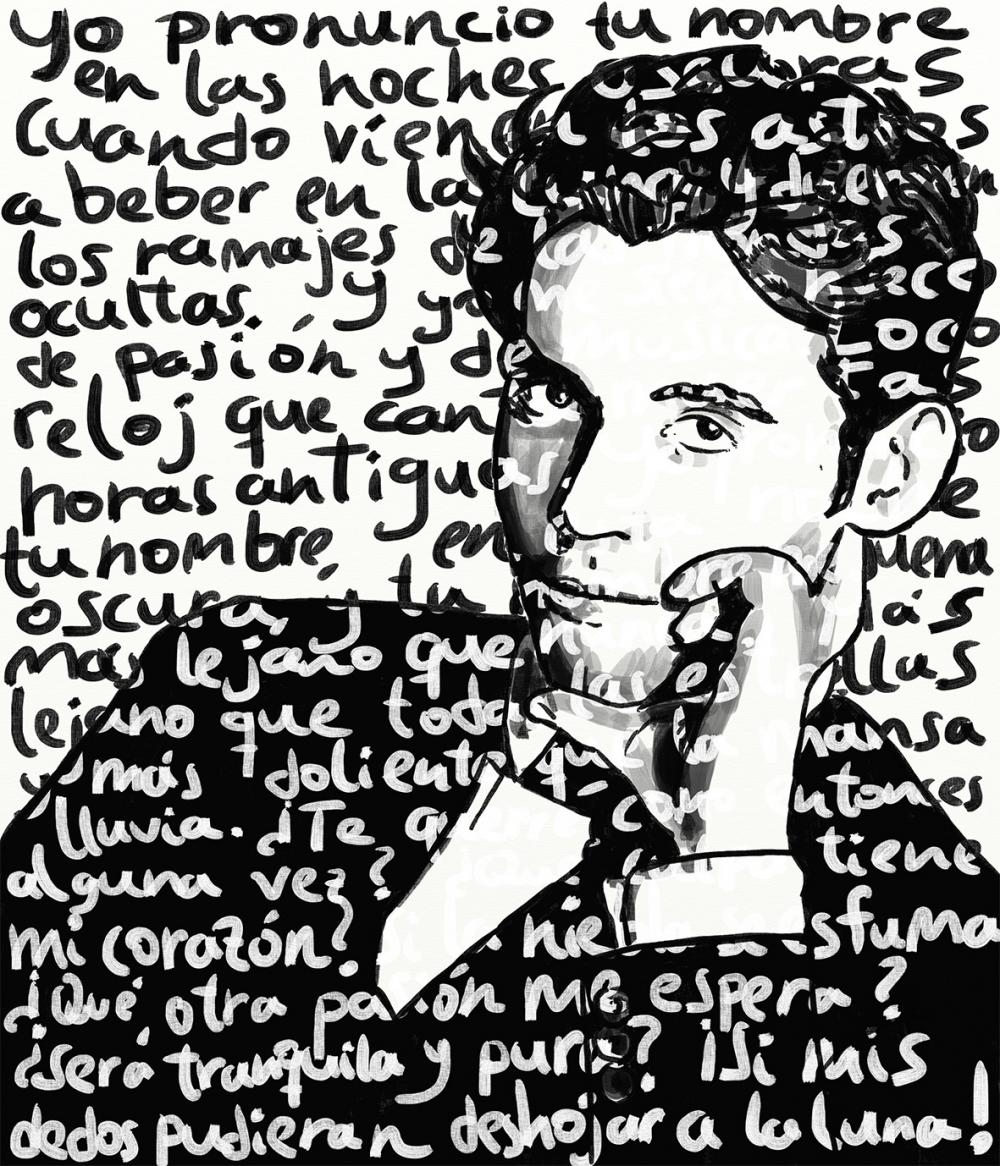 yo pronuncio tu nombre
en las noches oscuras
Cuando vienen los astros
a beber en la y duermen
los ramajes de las
ocultas. y yo me
de pasión y de música Loco
reloj que
horas antiguas
tu nombre, en
oscura, y tu nombre
más lejano que nunca.
lejano que todas las
y más doliente que la mansa
lluvia. ¿Te querré como entonces
alguna vez? tiene
mi corazón? Si la esfuma
¿Qué otra pasión me espera?
¿será tranquila y pura? ¡Si mis
dedos pudieran deshojar a la luna!